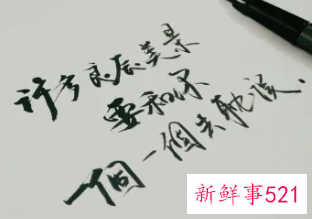 许多良辰美景
要和你
一個一個去耽误.
新鲜事521